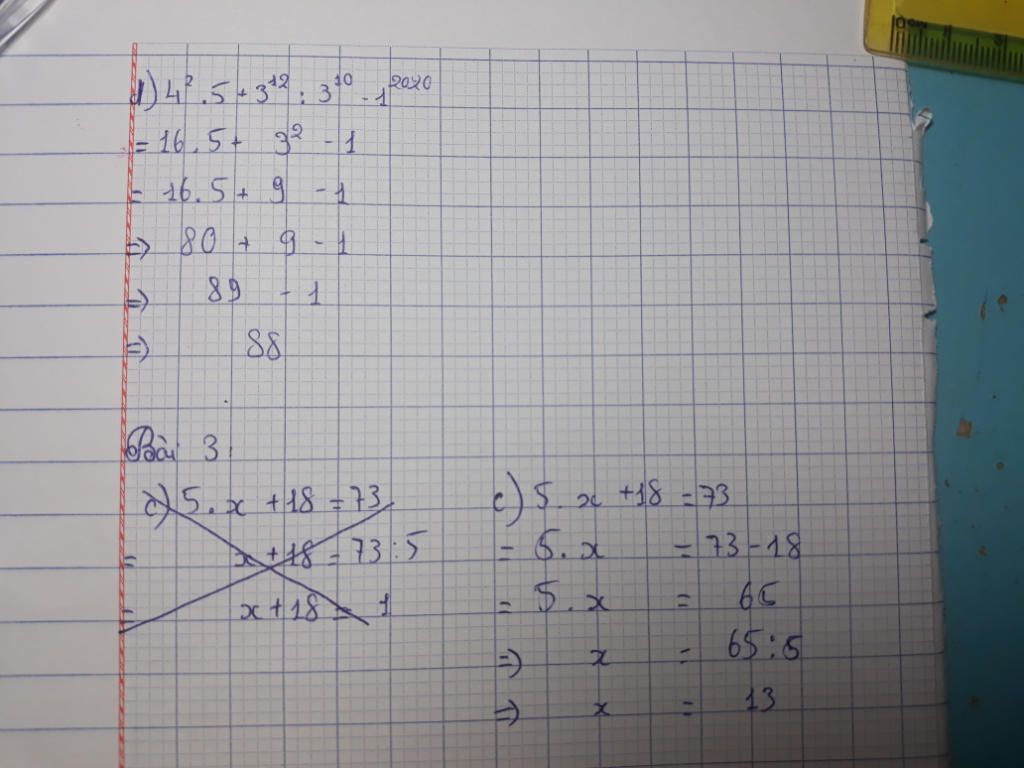 d) 4² . 5 + 3¹² : 3¹⁰ - 1²⁰²⁰
= 16 . 5 + 3² - 1
= 16 . 5 + 9 - 1
=> 80 + 9 - 1
=> 89 - 1
=> 88
Bài 3:
c) 5 . x + 18 = 73
= x + 18 = 73 : 5
= x + 18 = 1
c) 5 . x + 18 = 73
= 5 . x = 73 - 18
= 5 . x = 65
=> x = 65 : 5
=> x = 13